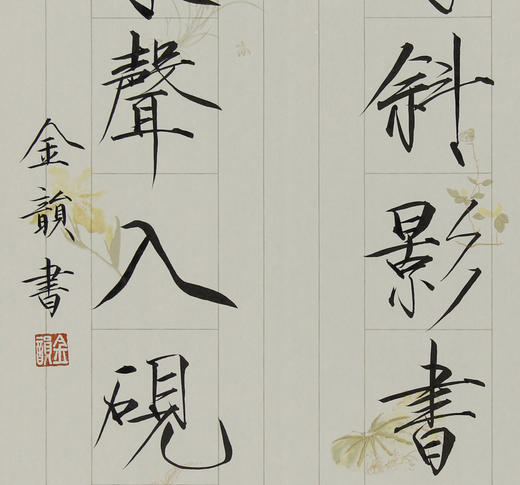 斜影書
聲入硯
金韻書
金韻